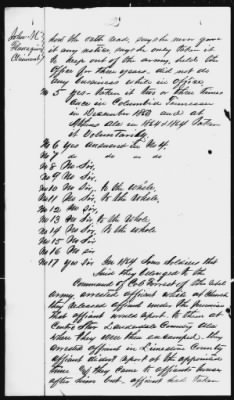 2
John H.
Claimant
had the oath read, says he never gave
it any notice, says he only taken it
to keep out of the army, held the
office for three years. did not do
any business while in office,
No 5 yes - taken it two or three times
once in Columbia Tennessee
in December 1863 and at
Athens Ala in 1864 & 1864 taken
it Voluntarily.
No 6 Yes answered in No 4.
No 7 do do do
No 8 No Sir,
No 9 No Sir,
No 10 No Sir, to the whole,
No 11 No Sir, to the whole,
No 12 No Sir,
No 13 No Sir to the whole,
No 14 No Sir, to the whole
No 15 No Sir
No 16 No Sir
No 17 yes Sir In 1864 Some Soldiers that
Said they belonged to the
Command of Col Forrest of the rebel
army arrested affiant while at Church
they released affiant under the promise
that affiant would report to them at
Centre Star Lauderdale County Ala
when they were then encamped. they
arrested affiant in Limestone County
affiant didn't report at the appointed
time & they came to affiants house
after him but affiant had taken